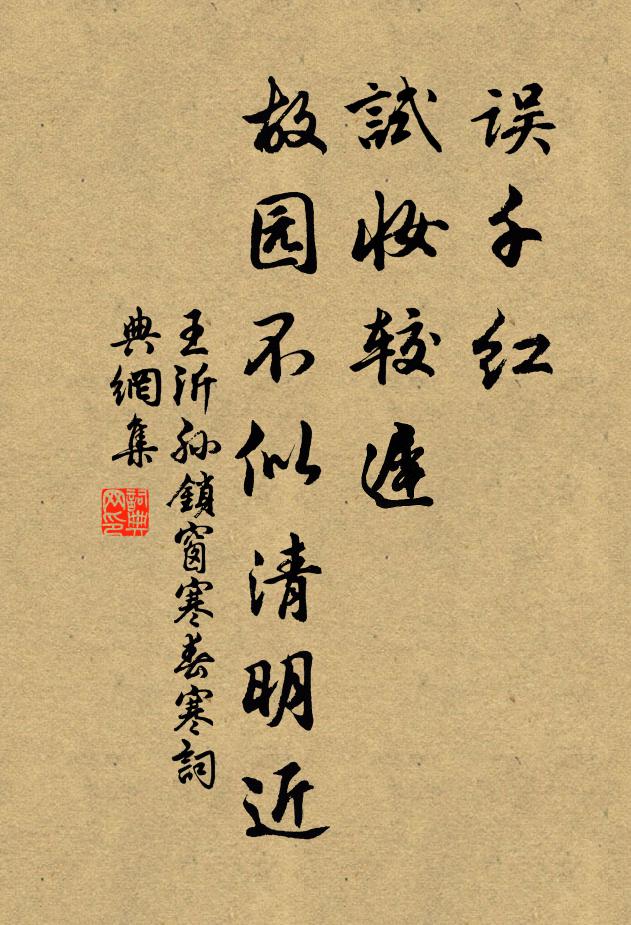 误千红
試妆较遲
故园不似清明近
王沂孙鎖窗寒春寒詞
典網集
詞典
网印